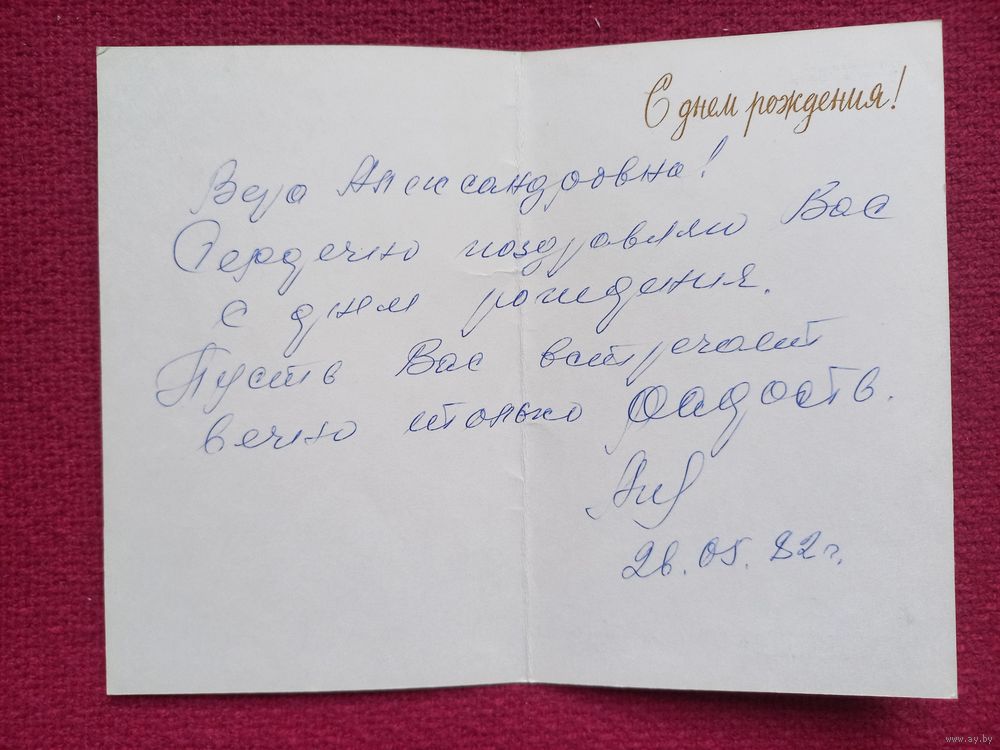 С днем рождения!
Вера Александровна!
Сердечно поздравляю Вас
с днем рождения.
Пусть Вас встречает
вечно только радость.
26.05.82 г.
www.ay.by